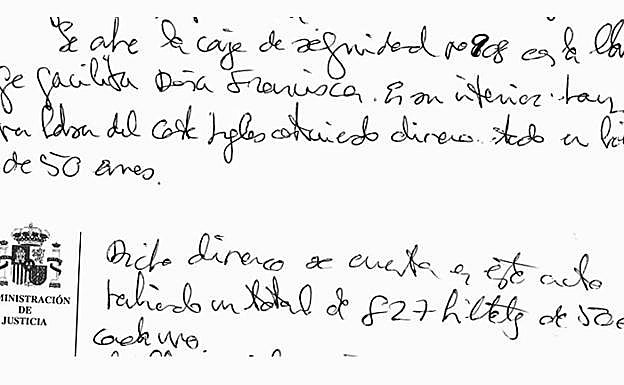 Se abre la caja de seguridad nº 98 con la lla
ge facilita Doña Francisca. En su interior hay
na bolsa del Corte Ingles conteniendo dinero todo en bi
de 50 euros.
Dicho dinero se cuenta en este acto
habiendo un total de 827 billetes de 50 e
cada uno.
MINISTRACIÓN
DE
JUSTICIA